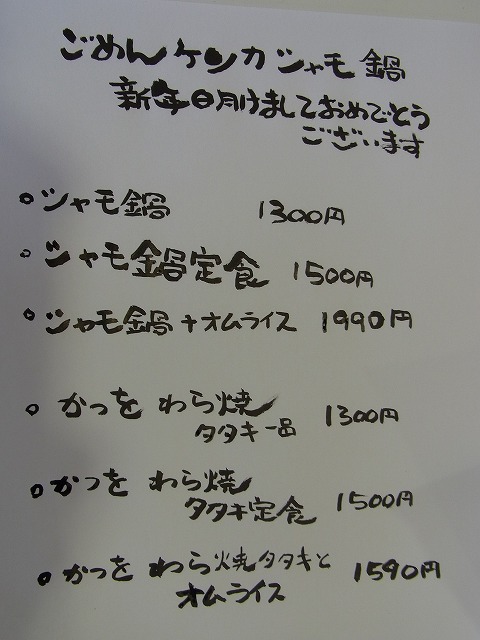 ごめんケンカシャモ鍋
新年明けましておめでとう
ございます
シャモ鍋 1300円
シャモ鍋定食 1500円
シャモ鍋+オムライス 1990円
かつを わら焼
タタキ一品 1300円
かつを わら焼
タタキ定食 1500円
かつを わら焼タタキと
オムライス 1590円